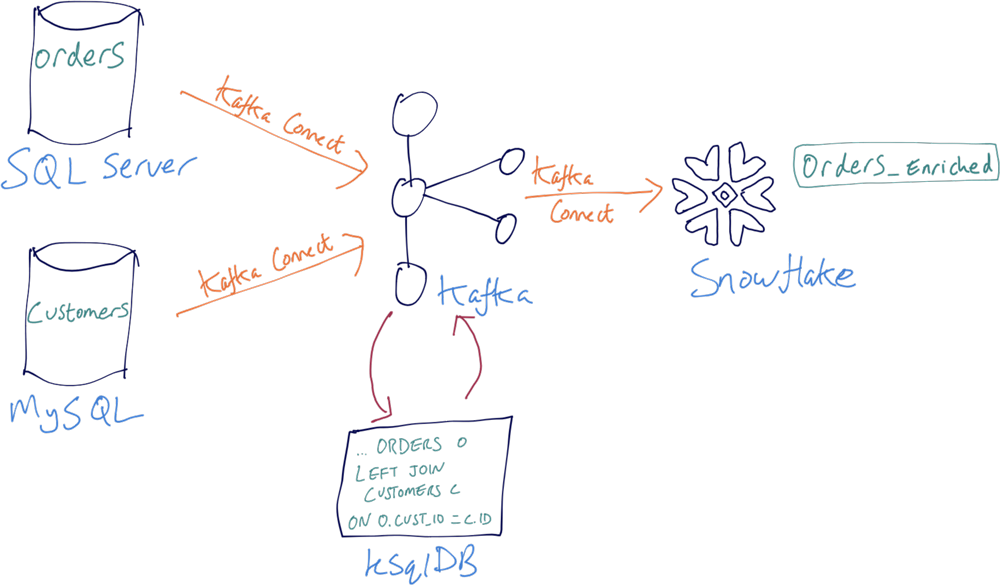 Orders
SQL Server
Kafka Connect
Customers
MySQL
Kafka Connect
Kafka
Kafka
Connect
Snowflake
Orders_Enriched
... ORDERS O
LEFT JOIN
CUSTOMERS C
ON O.CUST_ID = C.ID
ksqlDB